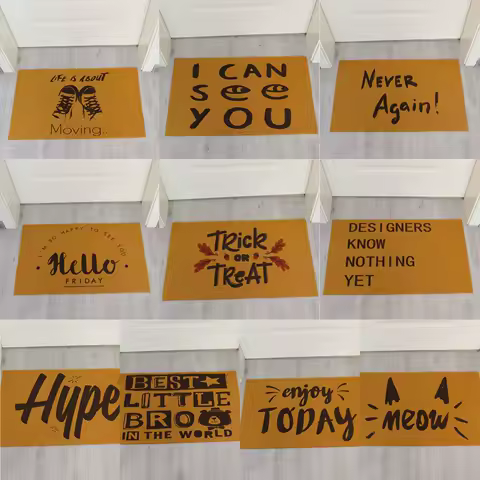 LIFE IS ABOUT
Moving..
I CAN
SEE
YOU
NEVER
Again!
I'M SO HAPPY TO SEE YOU
Hello
FRIDAY
TRick
OR
TReAT
DESIGNERS
KNOW
NOTHING
YET
Hype
BEST
LITTLE
BRO
IN THE WORLD
enjoy
TODAY
meow